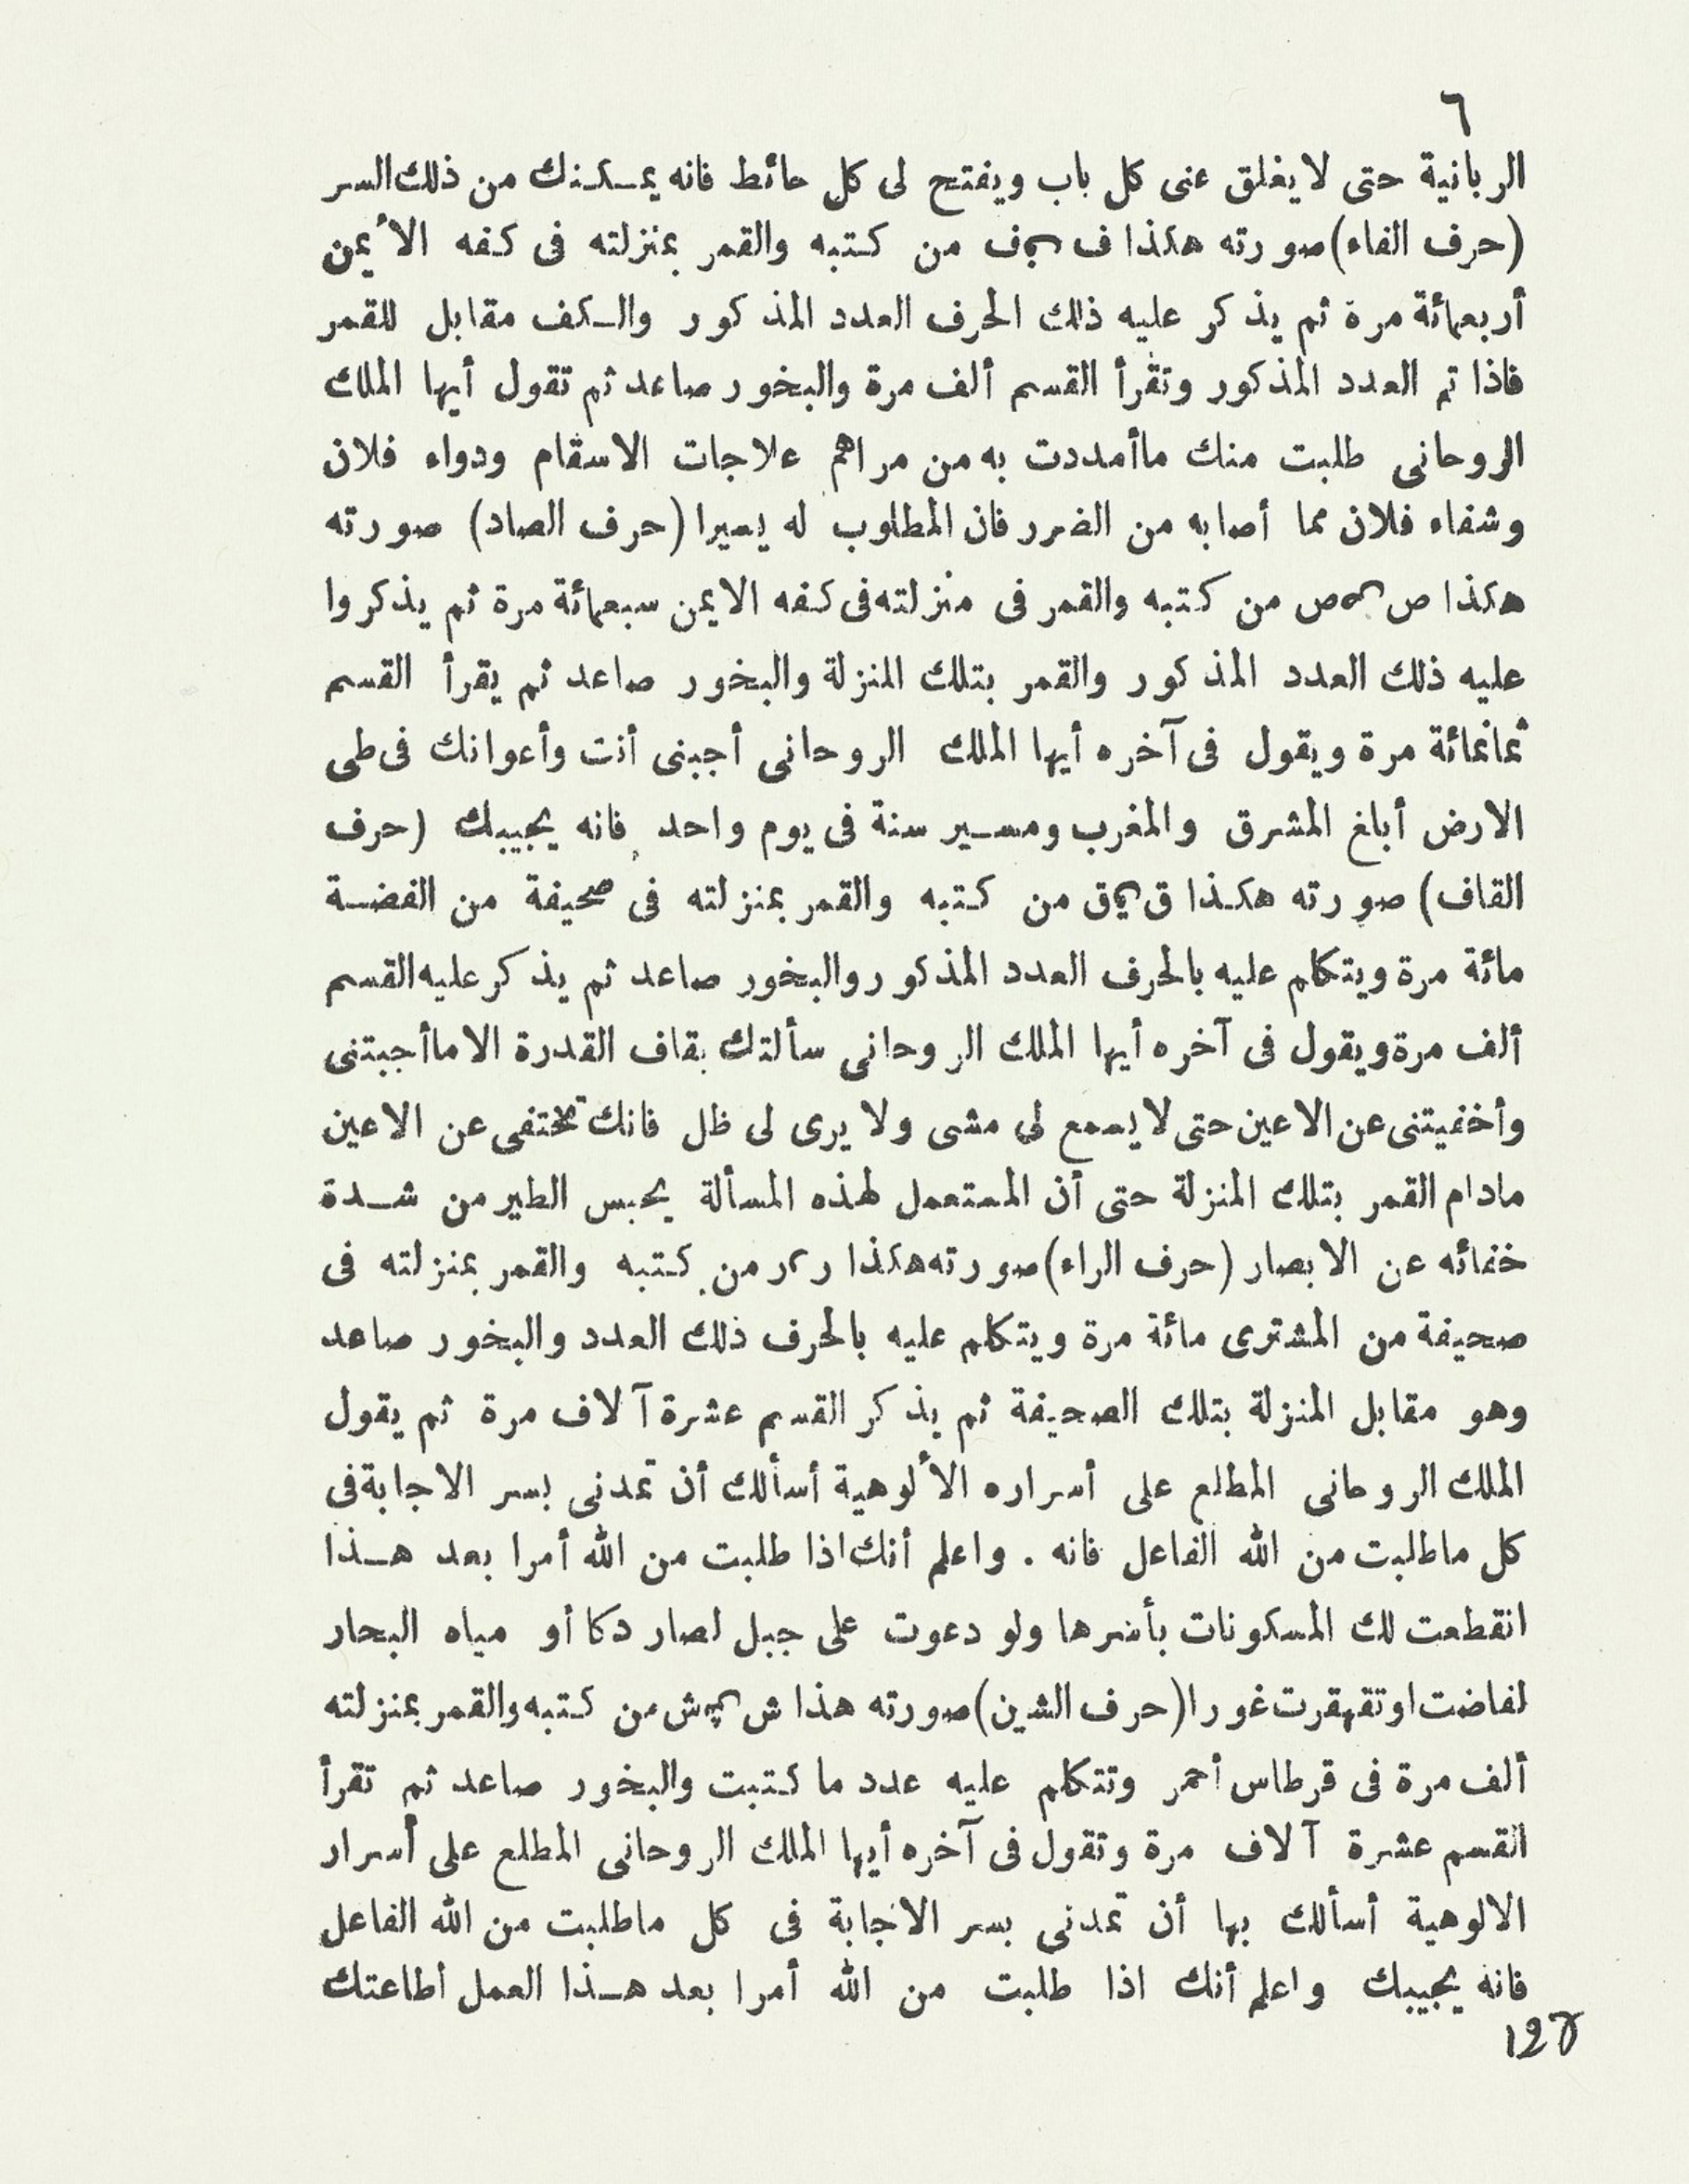 ٦
الربانية حتى لا يغلق عنى كل باب ويفتح لى كل حائط فانه يمكنك من ذلك السر
(حرف الفاء) صورته هكذا ف ف من كتبه والقمر بمنزلته فى كفه الأيمن
أربعمائة مرة ثم يذكر عليه ذلك الحرف العدد المذكور والكف مقابل للقمر
فاذا تم العدد المذكور وتقرأ القسم ألف مرة والبخور صاعد ثم تقول أيها الملك
الروحانى طلبت منك ما أمددت به من مراهم علاجات الاسقام ودواء فلان
وشفاء فلان مما أصابه من الضرر فان المطلوب له يسيرا (حرف الصاد) صورته
هكذا ص ص من كتبه والقمر فى منزلته فى كفه الايمن سبعمائة مرة ثم يذكروا
عليه ذلك العدد المذكور والقمر بتلك المنزلة والبخور صاعد ثم يقرأ القسم
ثمانمائة مرة ويقول فى آخره أيها الملك الروحانى أجبنى أنت وأعوانك فى طى
الارض أبلغ المشرق والمغرب ومسير سنة فى يوم واحد فانه يجيبك (حرف
القاف) صورته هكذا ق ق من كتبه والقمر بمنزلته فى صحيفة من الفضة
مائة مرة ويتكلم عليه بالحرف العدد المذكور والبخور صاعد ثم يذكر عليه القسم
ألف مرة ويقول فى آخره أيها الملك الروحانى سألتك بقاف القدرة الا ما أجبتنى
وأخفيتنى عن الاعين حتى لا يسمع لى مشى ولا يرى لى ظل فانك تختفى عن الاعين
مادام القمر بتلك المنزلة حتى أن المستعمل لهذه المسألة يحبس الطير من شدة
خفائه عن الابصار (حرف الراء) صورته هكذا ر ر من كتبه والقمر بمنزلته فى
صحيفة من المشترى مائة مرة ويتكلم عليه بالحرف ذلك العدد والبخور صاعد
وهو مقابل المنزلة بتلك الصحيفة ثم يذكر القسم عشرة آلاف مرة ثم يقول
الملك الروحانى المطلع على أسراره الألوهية أسألك أن تمدنى بسر الاجابة فى
كل ما طلبت من الله الفاعل فانه . واعلم أنك اذا طلبت من الله أمرا بعد هذا
انقطعت لك المسكونات بأسرها ولو دعوت على جبل لصار دكا أو مياه البحار
لفاضت او تقهقرت غورا (حرف الشين) صورته هذا ش ش من كتبه والقمر بمنزلته
ألف مرة فى قرطاس أحمر وتتكلم عليه عدد ما كتبت والبخور صاعد ثم تقرأ
القسم عشرة آلاف مرة وتقول فى آخره أيها الملك الروحانى المطلع على أسرار
الالوهية أسألك بها أن تمدنى بسر الاجابة فى كل ما طلبت من الله الفاعل
فانه يجيبك واعلم أنك اذا طلبت من الله أمرا بعد هذا العمل أطاعتك